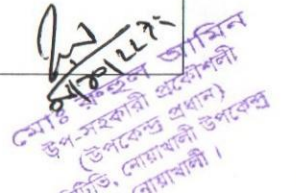 মোঃ রুহুল আমিন
উপ-সহকারী প্রকৌশলী
(উপকেন্দ্র প্রধান)
নোয়াখালী উপকেন্দ্র
নোয়াখালী।